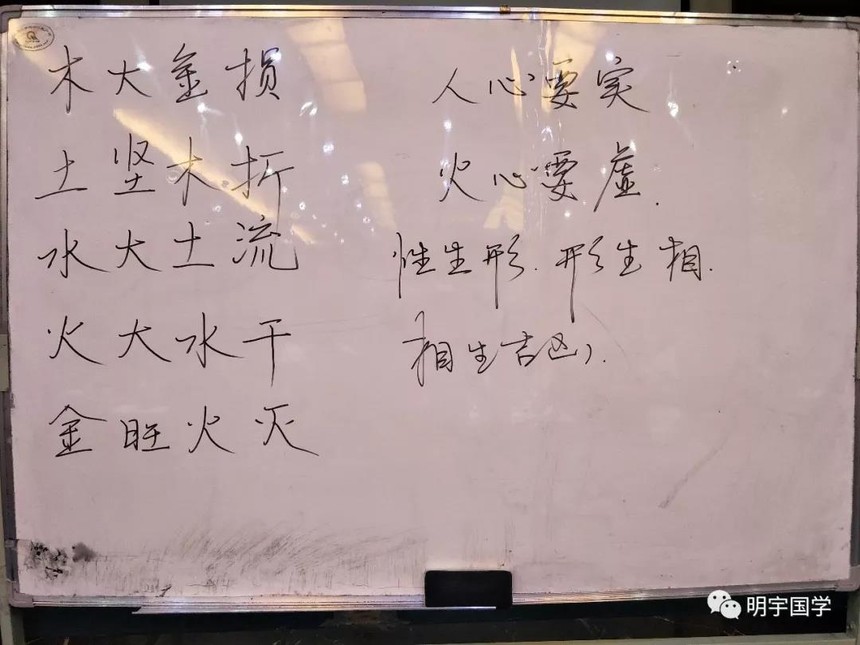 木大金损
土坚木折
水大土流
火大水干
金旺火灭
人心要实
火心要虚.
性生形.形生相.
相生吉凶.
明宇国学